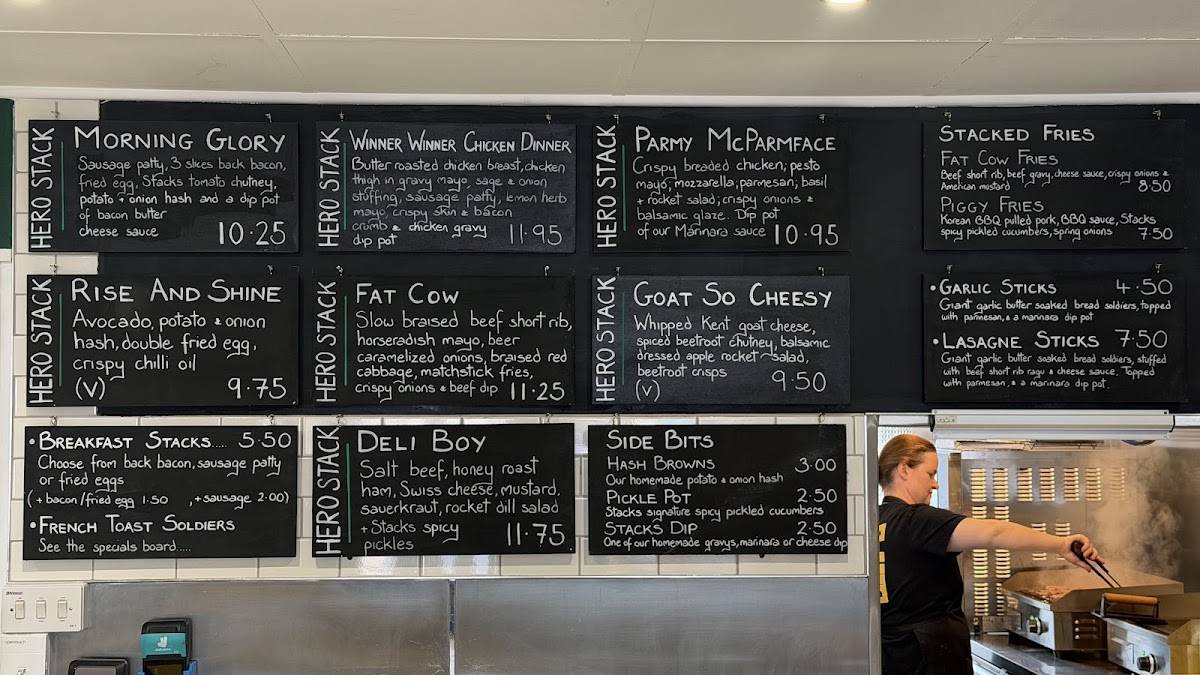 HERO STACK
MORNING GLORY
Sausage patty, 3 slices back bacon,
fried egg, Stacks tomato chutney,
potato + onion hash and a dip pot
of bacon butter
cheese sauce 10.25
HERO STACK
WINNER WINNER CHICKEN DINNER
Butter roasted chicken breast, chicken
thigh in gravy mayo, sage & onion
stuffing, sausage patty, lemon herb
mayo, crispy skin & bacon
crumb & chicken gravy
dip pot 11.95
HERO STACK
PARMY MCPARMFACE
Crispy breaded chicken; pesto
mayo; mozzarella; parmesan; basil
+ rocket salad; crispy onions &
balsamic glaze. Dip pot
of our Marinara sauce 10.95
STACKED FRIES
FAT COW FRIES
Beef short rib, beef gravy, cheese sauce, crispy onions &
American mustard 8.50
PIGGY FRIES
Korean BBQ pulled pork, BBQ sauce, Stacks
spicy pickled cucumbers, spring onions 7.50
HERO STACK
RISE AND SHINE
Avocado, potato & onion
hash, double fried egg,
crispy chilli oil
(V) 9.75
HERO STACK
FAT COW
Slow braised beef short rib,
horseradish mayo, beer
caramelized onions, braised red
cabbage, matchstick fries,
crispy onions & beef dip 11.25
HERO STACK
GOAT SO CHEESY
Whipped Kent goat cheese,
spiced beetroot chutney, balsamic
dressed apple rocket salad,
beetroot crisps
(V) 9.50
• GARLIC STICKS 4.50
Giant garlic butter soaked bread soldiers, topped
with parmesan, & a marinara dip pot
• LASAGNE STICKS 7.50
Giant garlic butter soaked bread soldiers, stuffed
with beef short rib ragu & cheese sauce. Topped
with parmesan, & a marinara dip pot.
• BREAKFAST STACKS..... 5.50
Choose from back bacon, sausage patty
or fried eggs
(+ bacon/fried egg 1.50 , + sausage 2.00)
• FRENCH TOAST SOLDIERS
See the specials board.....
HERO STACK
DELI BOY
Salt beef, honey roast
ham, Swiss cheese, mustard,
sauerkraut, rocket dill salad
+ Stacks spicy
pickles 11.75
SIDE BITS
HASH BROWNS 3.00
Our homemade potato & onion hash
PICKLE POT 2.50
Stacks signature spicy pickled cucumbers
STACKS DIP 2.50
One of our homemade gravys, marinara or cheese dip